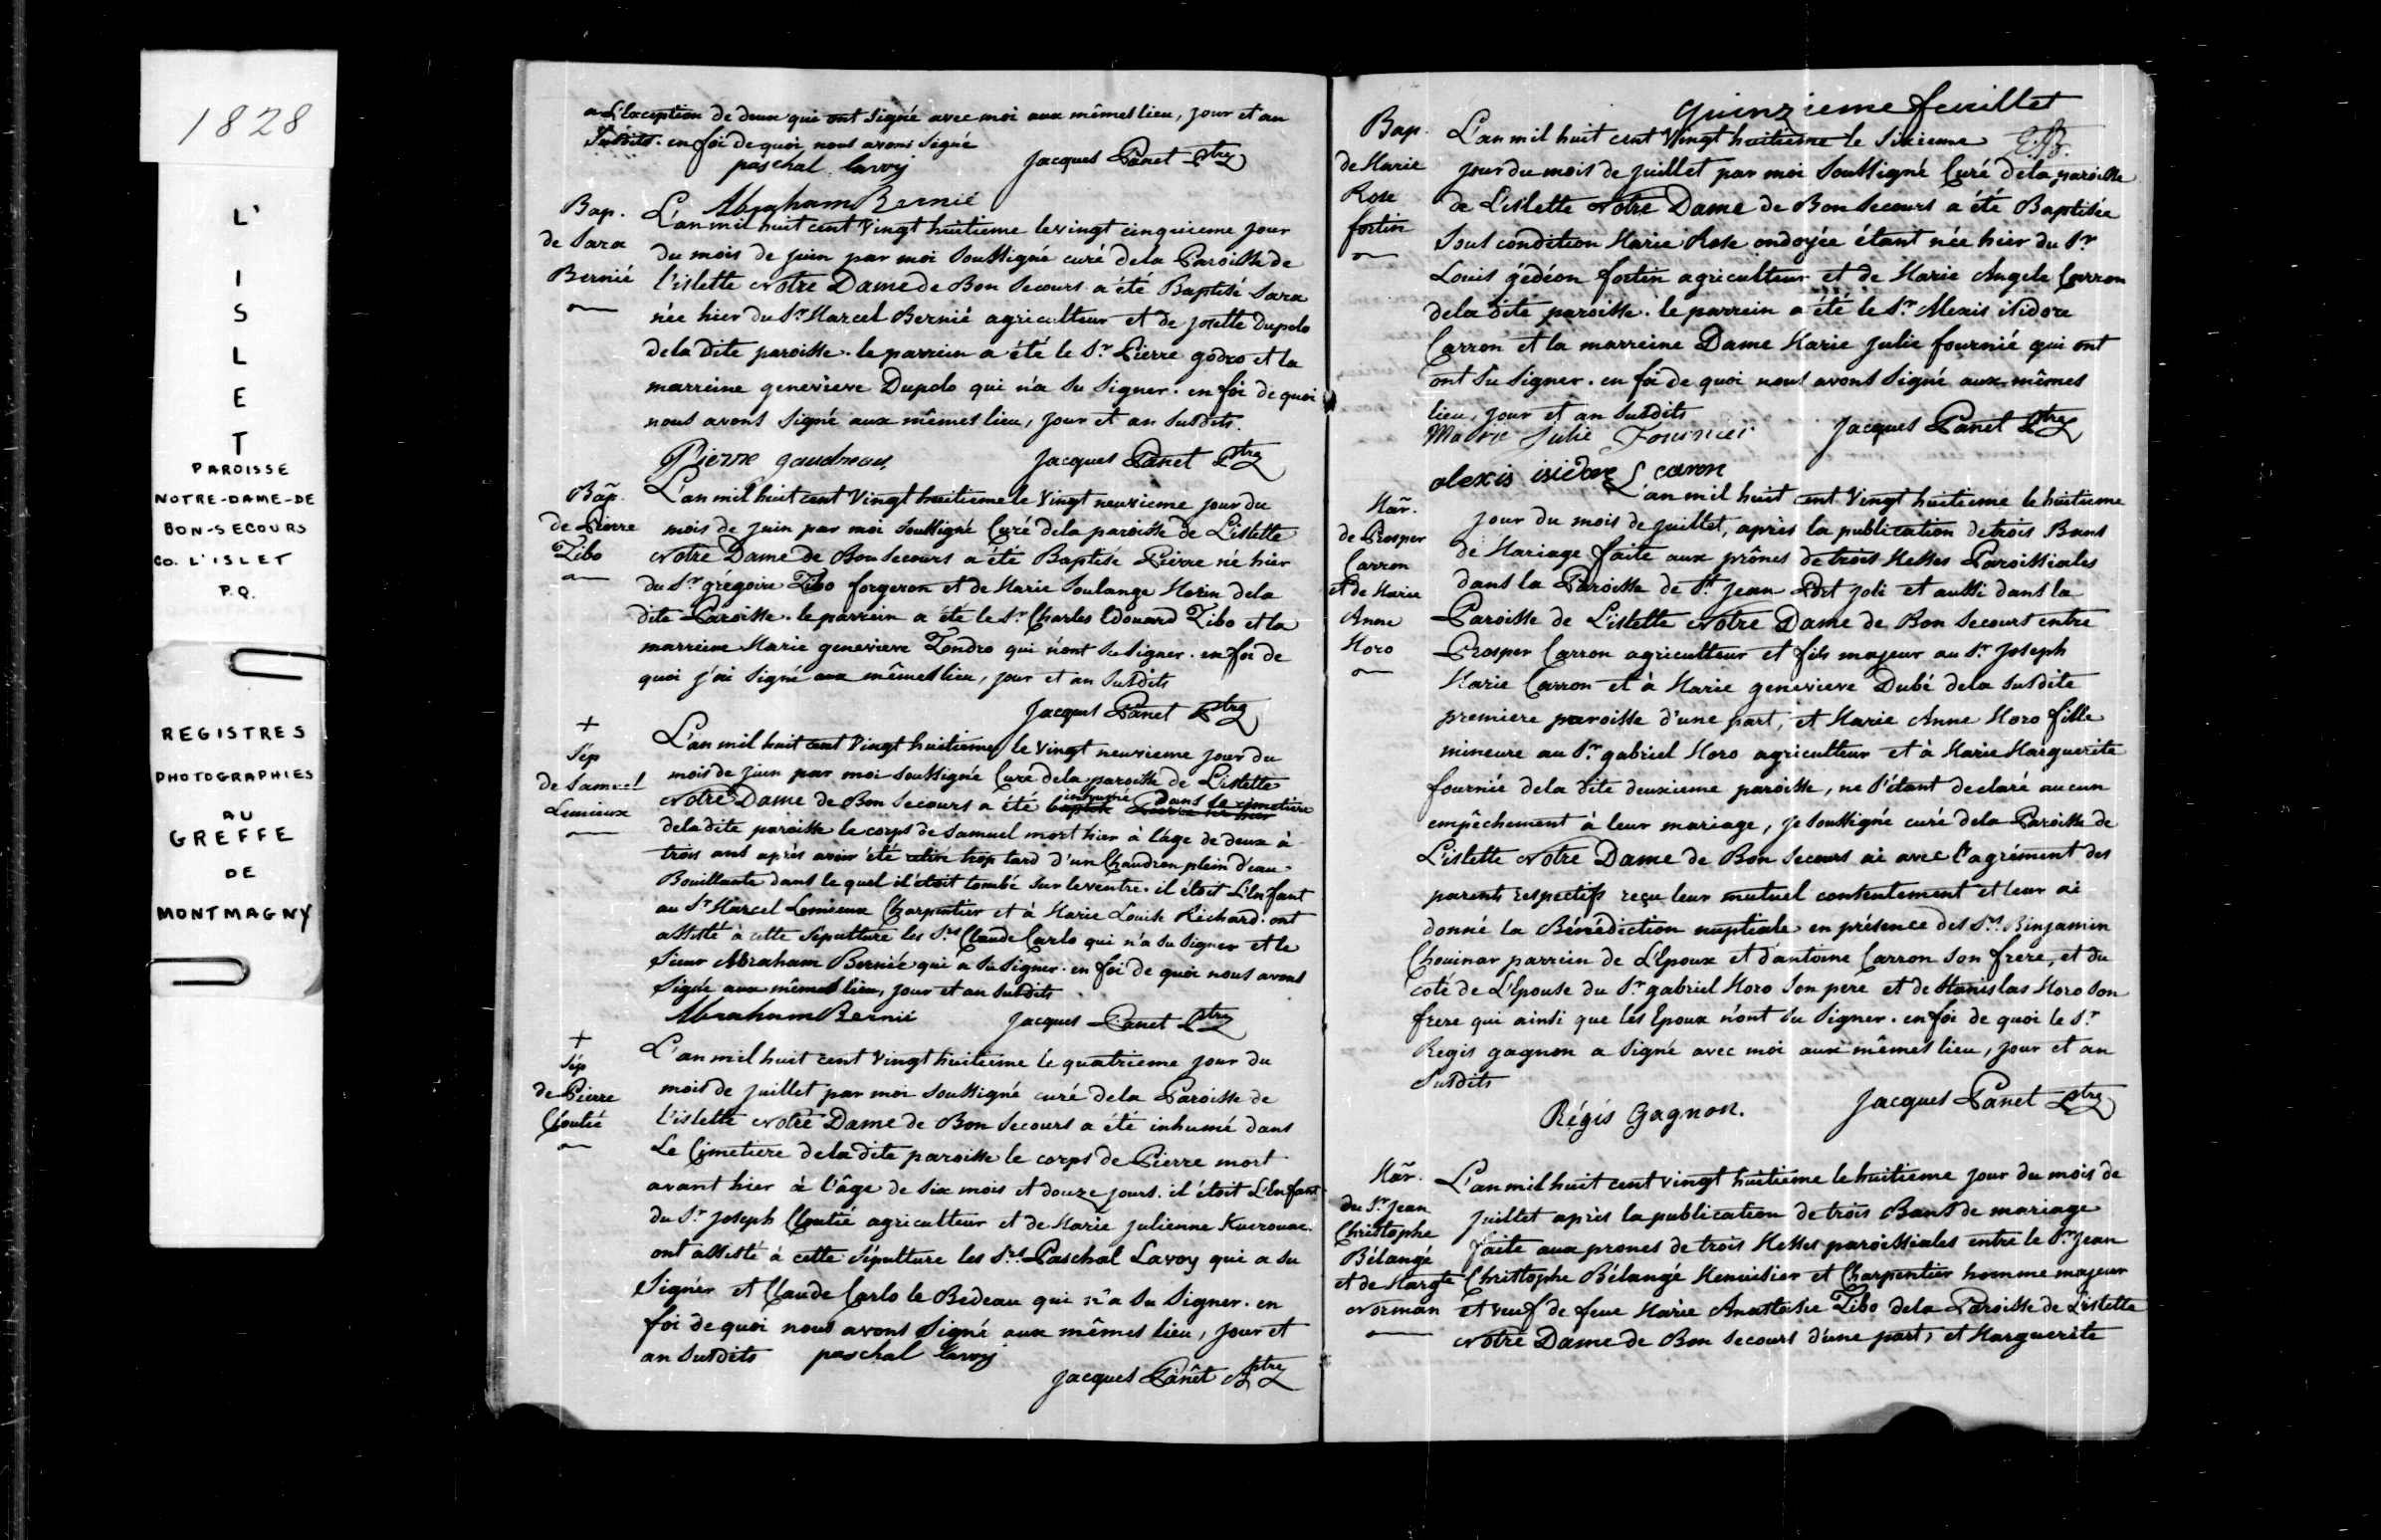 1828
L'
I
S
L
E
T
PAROISSE
NOTRE-DAME-DE
BON-SECOURS
CO. L'ISLET
P.Q.
REGISTRES
PHOTOGRAPHIES
AU
GREFFE
DE
MONTMAGNY
a L'exception de deux qui ont signé avec moi aux mêmes lieu, jour et an
susdits. en foi de quoi nous avons signé
paschal lavoy Jacques Panet Ptre
Abraham Bernié
Bap.
de Sara
Bernié
L'an mil huit cent vingt huitieme le vingt cinquieme jour
du mois de juin par moi soussigné curé de la Paroisse de
l'islette Notre Dame de Bon Secours a été Baptisé Sara
née hier du Sr Marcel Bernié agriculteur et de josette Dupolo
de la dite paroisse. le parrein a été le Sr Pierre godro et la
marreine genevieve Dupolo qui n'a su signer. en foi de quoi
nous avons signé aux mêmes lieu, jour et an susdits.
Pierre gaudreau Jacques Panet Ptre
Bap.
de Pierre
Tibo
L'an mil huit cent vingt huitieme le vingt neuvieme jour du
mois de juin par moi soussigné Curé de la paroisse de L'islette
Notre Dame de Bon Secours a été Baptisé Pierre né hier
du Sr grégoire Tibo forgeron et de Marie Soulange Morin de la
dite Paroisse. le parrein a été le Sr Charles Edouard Tibo et la
marreine Marie genevieve Tondro qui n'ont su signer. en foi de
quoi j'ai signé aux mêmes lieu, jour et an susdits
Jacques Panet Ptre
+
Sép
de Samuel
Lemieux
L'an mil huit cent vingt huitieme le vingt neuvieme jour du
mois de juin par moi soussigné Curé de la paroisse de L'islette
Notre Dame de Bon Secours a été inhumé dans le cimetiere
de la dite paroisse le corps de Samuel mort hier à l'âge de deux à
trois ans après avoir été retiré trop tard d'un Chaudron plein d'eau
Bouillante dans le quel il étoit tombé sur le ventre. il étoit L'Enfant
au Sr Marcel Lemieux Charpentier et à Marie Louise Richard. ont
assisté à cette sépulture les Srs Claude Carlo qui n'a su signer et le
Sieur Abraham Bernié qui a su signer. en foi de quoi nous avons
signé aux mêmes lieu, jour et an susdits
Abraham Bernié Jacques Panet Ptre
+
Sép
de Pierre
Cloutié
L'an mil huit cent vingt huitieme le quatrieme jour du
mois de juillet par moi soussigné curé de la Paroisse de
l'islette Notre Dame de Bon Secours a été inhumé dans
Le Cimetiere de la dite paroisse le corps de Pierre mort
avant hier à l'âge de six mois et douze jours. il étoit L'Enfant
du Sr Joseph Cloutié agriculteur et de Marie julienne Kuerouac.
ont assisté à cette sépulture les Srs Paschal Lavoy qui a su
Signer et Claude Carlo le Bedeau qui n'a su signer. en
foi de quoi nous avons signé aux mêmes lieu, jour et
an susdits paschal lavoy
Jacques Panêt Ptre
quinzieme feuillet
Bap.
de Marie
Rose
fortin
L'an mil huit cent vingt huitieme le sixieme
jour du mois de juillet par moi soussigné Curé de la paroisse
de L'islette Notre Dame de Bon Secours a été Baptisée
sous condition Marie Rose ondoyée étant née hier du Sr
Louis gédéon fortin agriculteur et de Marie Angele Carron
de la dite paroisse. le parrein a été le Sr Alexis isidore
Carron et la marreine Dame Marie julie fournié qui ont
ont su signer. en foi de quoi nous avons signé aux mêmes
lieu, jour et an susdits
Marie Julie Fournier Jacques Panet Ptre
alexis isidore caron
Mar.
de Prosper
Carron
et de Marie
Anne
Moro
L'an mil huit cent vingt huitieme le huitieme
jour du mois de juillet, après la publication de trois Bans
de Mariage faite aux prônes de trois Messes Paroissiales
dans la Paroisse de St Jean Port joli et aussi dans la
Paroisse de L'islette Notre Dame de Bon Secours entre
Prosper Carron agriculteur et fils majeur au Sr Joseph
Marie Carron et à Marie genevieve Dubé de la susdite
premiere paroisse d'une part, et Marie Anne Moro fille
mineure au Sr gabriel Moro agriculteur et à Marie Marguerite
fournié de la dite deuxieme paroisse, ne s'étant declaré aucun
empêchement à leur mariage, je soussigné curé de la Paroisse de
L'islette Notre Dame de Bon Secours ai avec l'agrément des
parents respectifs reçu leur mutuel consentement et leur ai
donné la Bénédiction nuptiale en présence des Srs Binjamin
Chouinar parrein de L'Epoux et d'antoine Carron son frere, et du
coté de L'Epouse du Sr gabriel Moro son pere et de Stanislas Moro son
frere qui ainsi que les Epoux n'ont su signer. en foi de quoi le Sr
Regis gagnon a signé avec moi aux mêmes lieu, jour et an
susdits
Régis Gagnon. Jacques Panet Ptre
Mar.
du Sr Jean
Christophe
Bélangé
et de Margte
Norman
L'an mil huit cent vingt huitieme le huitieme jour du mois de
juillet après la publication de trois Bans de mariage
faite aux prones de trois Messes paroissiales entre le Sr Jean
Christophe Bélangé Menuisier et Charpentier homme majeur
et veuf de feue Marie Anastasie Tibo de la Paroisse de L'islette
Notre Dame de Bon Secours d'une part, et Marguerite